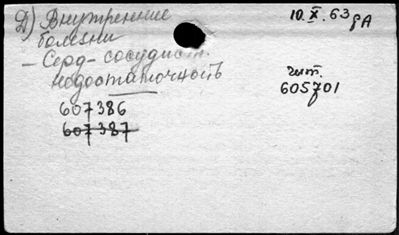 Д) Внутренние
болезни
- Серд-сосудист.
недостаточность
607386
607387
10.X.63 gA
чит.
605701